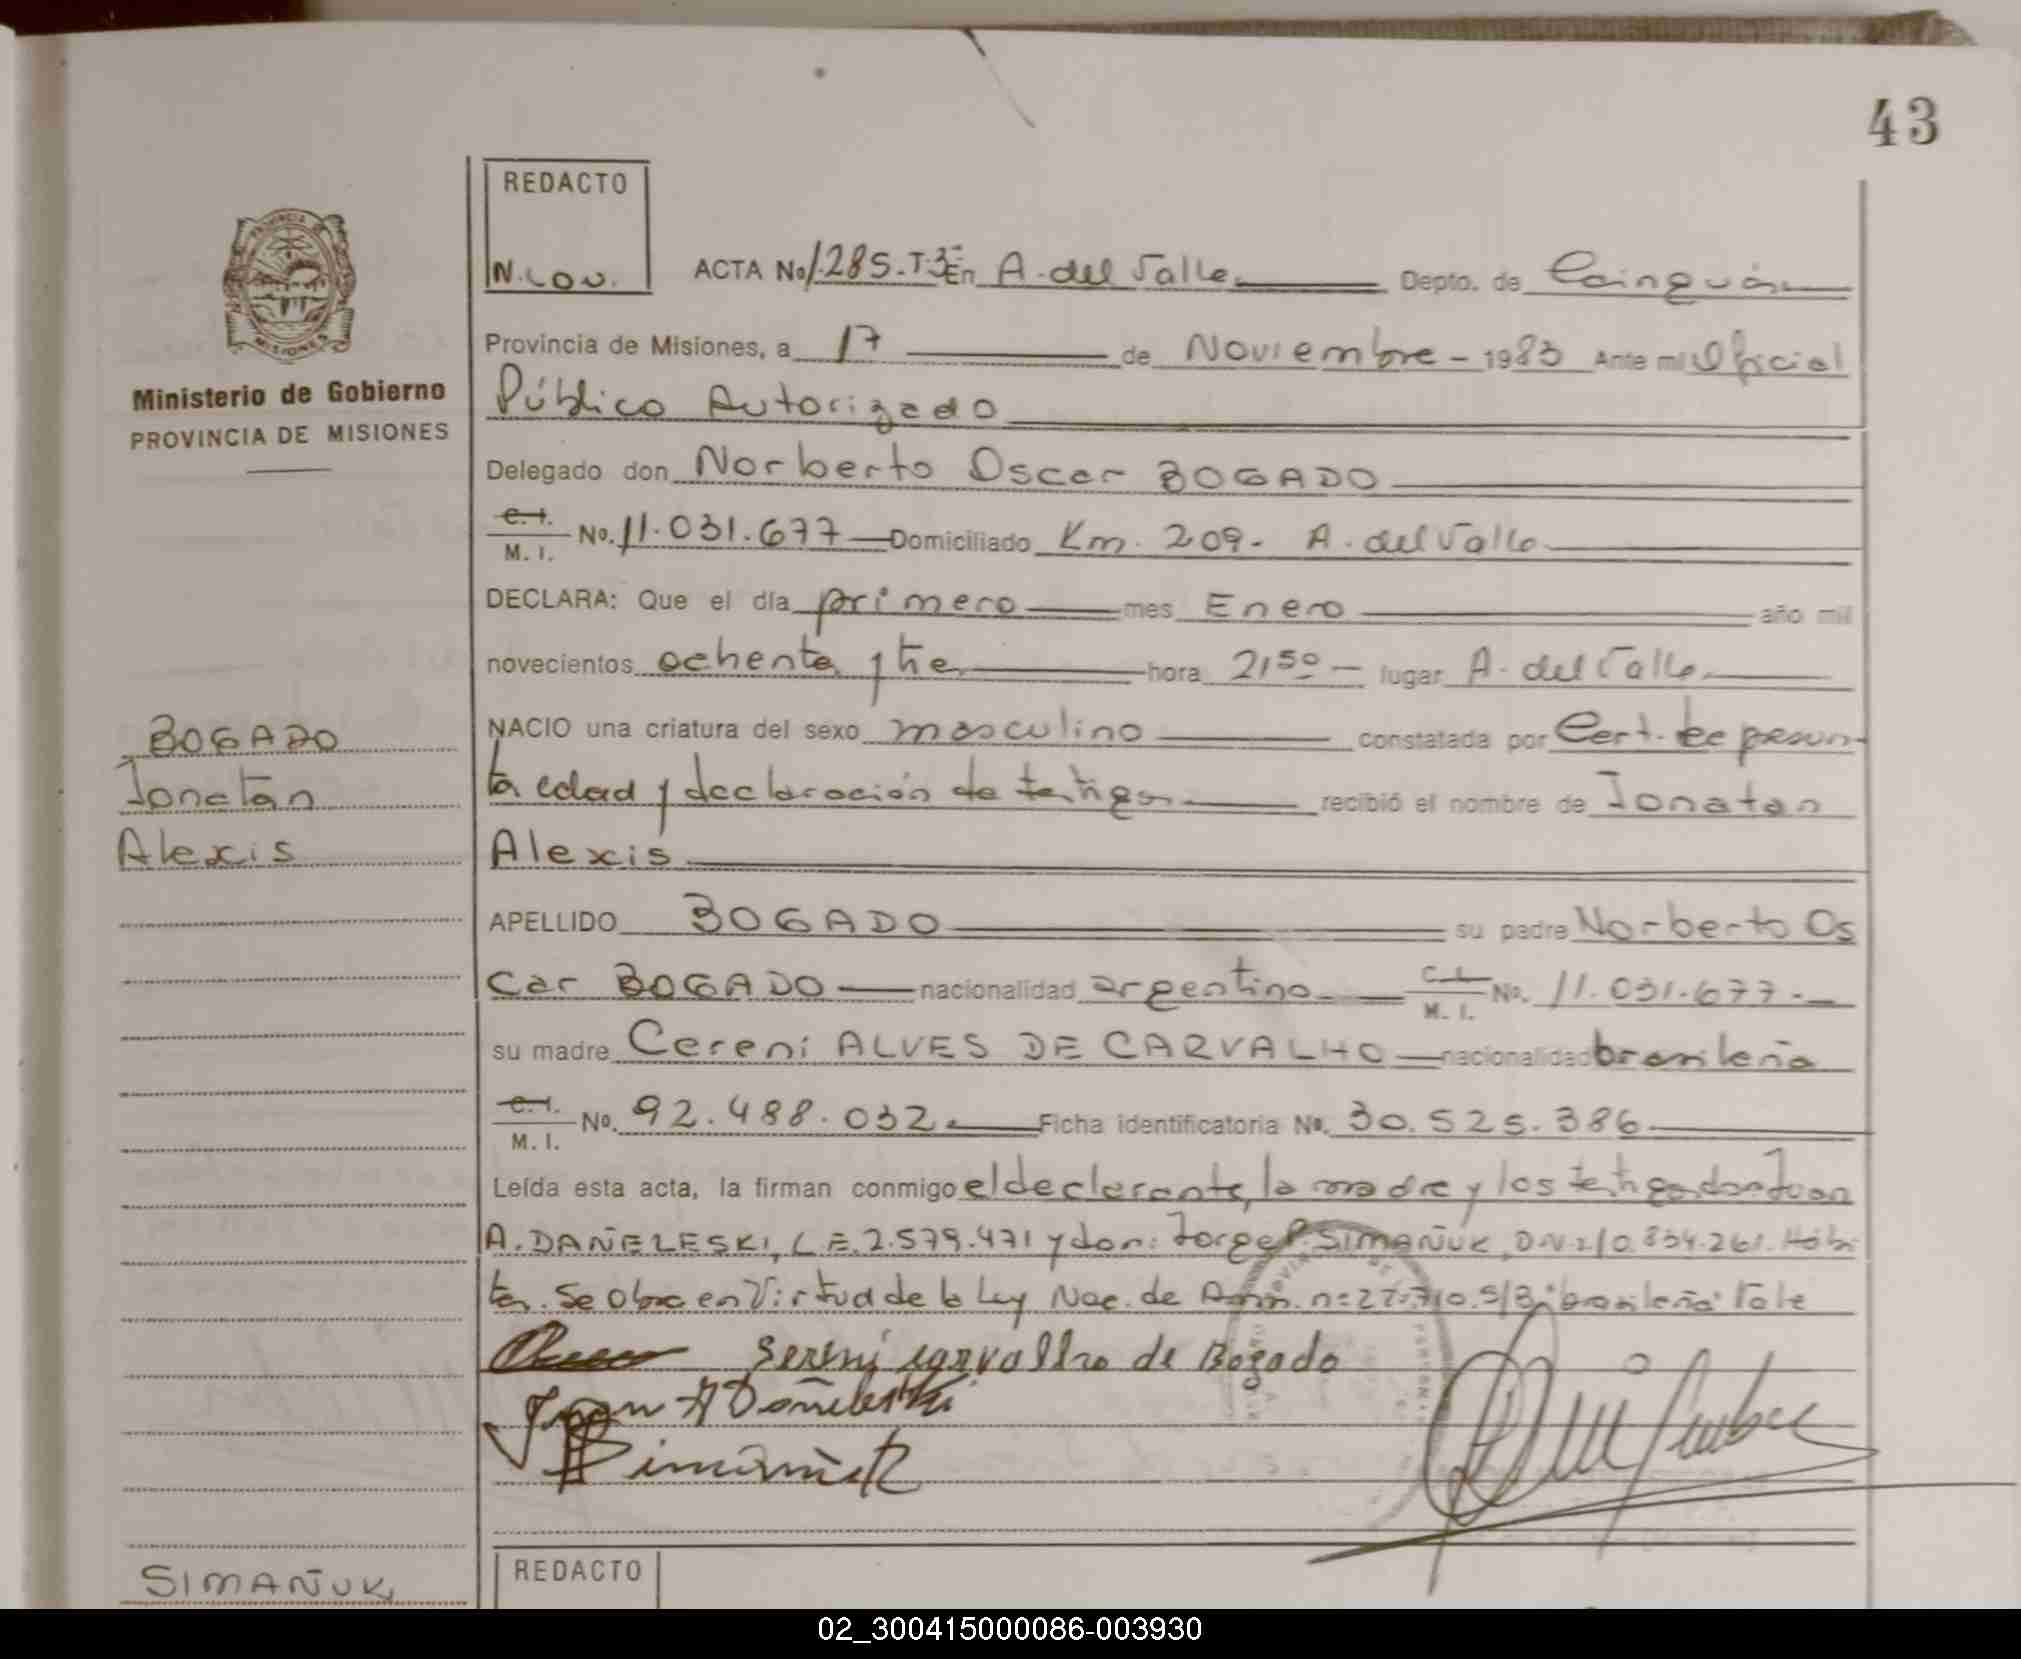 43
REDACTO
N. Lov.
ACTA No 1.285.T.3 En A. del Valle Depto. de Cainguás
Provincia de Misiones, a 17 de Noviembre - 1983 Ante mi Oficial
Público Autorizado
Delegado don Norberto Oscar BOGADO
C. I. M. I. No. 11.031.677 Domiciliado Km. 209. A. del Valle
DECLARA: Que el día primero mes Enero año mil
novecientos ochenta y tre hora 21,50 - lugar A. del Valle
NACIO una criatura del sexo masculino constatada por Cert. de presun-
ta edad y declaración de testigos recibió el nombre de Jonatan
Alexis
APELLIDO BOGADO su padre Norberto Os
car BOGADO nacionalidad argentino C. I. M. I. No. 11.031.677.
su madre Cereni ALVES DE CARVALHO nacionalidad brasileña
C. I. M. I. No. 92.488.032. Ficha identificatoria No. 30.525.386
Leída esta acta, la firman conmigo el declarante, la madre y los testigos don Juan
A. DAÑELESKI, L.E. 2.579.471 y don: Jorge P. SIMAÑUK, D.N.I 10.834.261. Hábi
tes. Se obra en Virtud de la Ley Nac. de Amn. n= "brasileña" Vale
Sereni carvalho de Bogado
Juan A Dañeleski
Simañuk
REDACTO
PROVINCIA DE
MISIONES
Ministerio de Gobierno
PROVINCIA DE MISIONES
BOGADO
Jonatán
Alexis
SIMAÑUK
02_300415000086-003930